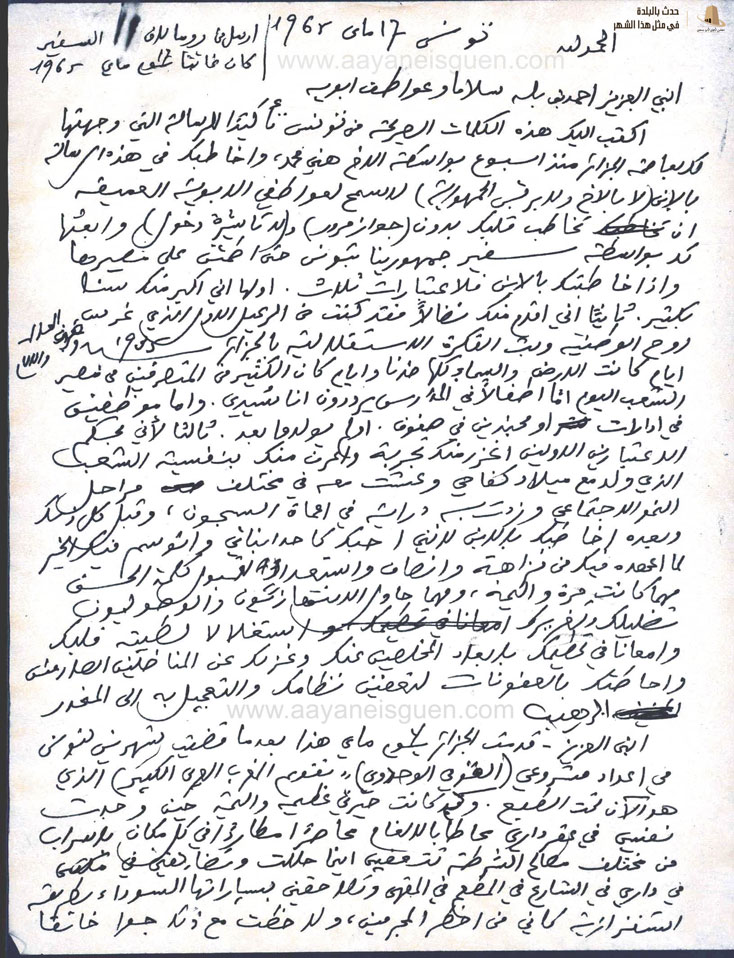 حدث بالبلدة
في مثل هذا الشهر
الحمد لله
تونس 17 ماي 1965
السفير
كان فاتنا ماي 1965
www.aayaneisguen.com
ابني العزيز احمد بن بلة سلاما وعواطف ابوية
اكتب اليك هذه الكلمات الصريحة من تونس تأكيدا للرسالة التي وجهتها
لك بعاصمة الجزائر منذ اسبوع بواسطة الاخ هني محمد، واخاطبك في هذه الرسالة
بالابن (لا بالاخ ولا برئيس الجمهورية) لاسمح لعواطفي الابوية العميقة
ان تخاطب قلبك بدون (جواز مرور) و(لا تأشيرة دخول) وابعثها
لك بواسطة سفير جمهوريتنا بتونس حتى اطمئن على مصيرها
واذا خاطبتك بالابن فلاعتبارات ثلاث. اولها اني اكبر منك سنا
بكثير. ثانيا اني اقدم منك نضالا فقد كنت من الرعيل الاول الذي غرس
روح الوطنية وبث الفكرة الاستقلالية بالجزائر
ايام كانت الارض والسماء كلها ضدنا وايام كان الكثير من المتصرفين في مصير
الشعب اليوم اما اطفالا في المدارس يرددون اناشيدي. واما موظفين
في ادارات او مجندين في صفوف. او لم يولدوا بعد. ثالثا لأني بحكم
الاعتبارين الاولين اغزر منك تجربة وأمرن منك بنفسية الشعب
الذي ولد مع ميلاد كفاحي وعشت معه في مختلف مراحل
النمو الاجتماعي وزدت به دراية في اعماق السجون، وقبل كل ذلك
وبعده اخاطبك بالابن لانني احبك كاحد ابنائي واتوسم فيك الخير
لما اعهده فيك من نزاهة وانصاف واستعداد لقبول كلمة الحق
مهما كانت مرة واليمة، ومهما حاول الانتهازيون والوصوليون
تضليلك والتغرير بك استغلالا لطيبة قلبك
وامعانا في تحطيمك بابعاد المخلصين عنك وعزلك عن المناضلين الصادقين
واحاطتك بالعفونات لتعفين نظامك والتعجيل به الى المنحدر
الرهيب
ابني العزيز - قدمت الجزائر ماي هذا بعدما قضيت شهرين بتونس
في اعداد مشروعي (الوحدوي) "تقويم المغرب العربي الكبير" الذي
هو الآن تحت الطبع. ولكم كانت حيرتي عظيمة واليمة حين وجدت
نفسي في عقر داري محاطا بالالغام محاصرا مطاردا في كل مكان باسراب
من مختلف مصالح الشرطة تتعقبني اينما حللت وتضايقني في مكتبي
في داري في الشارع في المطعم في المقهى وتلاحقني بسياراتها السوداء بطريقة
استفزازية كأني من اخطر المجرمين، ولاحظت مع ذلك جوا خانقا
www.aayaneisguen.com